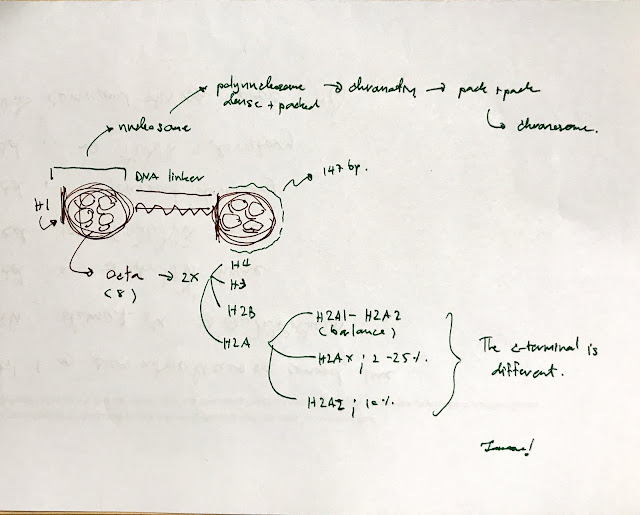 polynucleosome → chromatin → pack + pack
dense + packed
nucleosome
chromosome.
DNA linker
147 bp.
H1
Octa → 2X
(8)
H4
H3
H2B
H2A
H2A1 - H2A2
(balance)
H2AX ; 2 - 25%.
H2AZ ; 10%.
The c-terminal is
different.